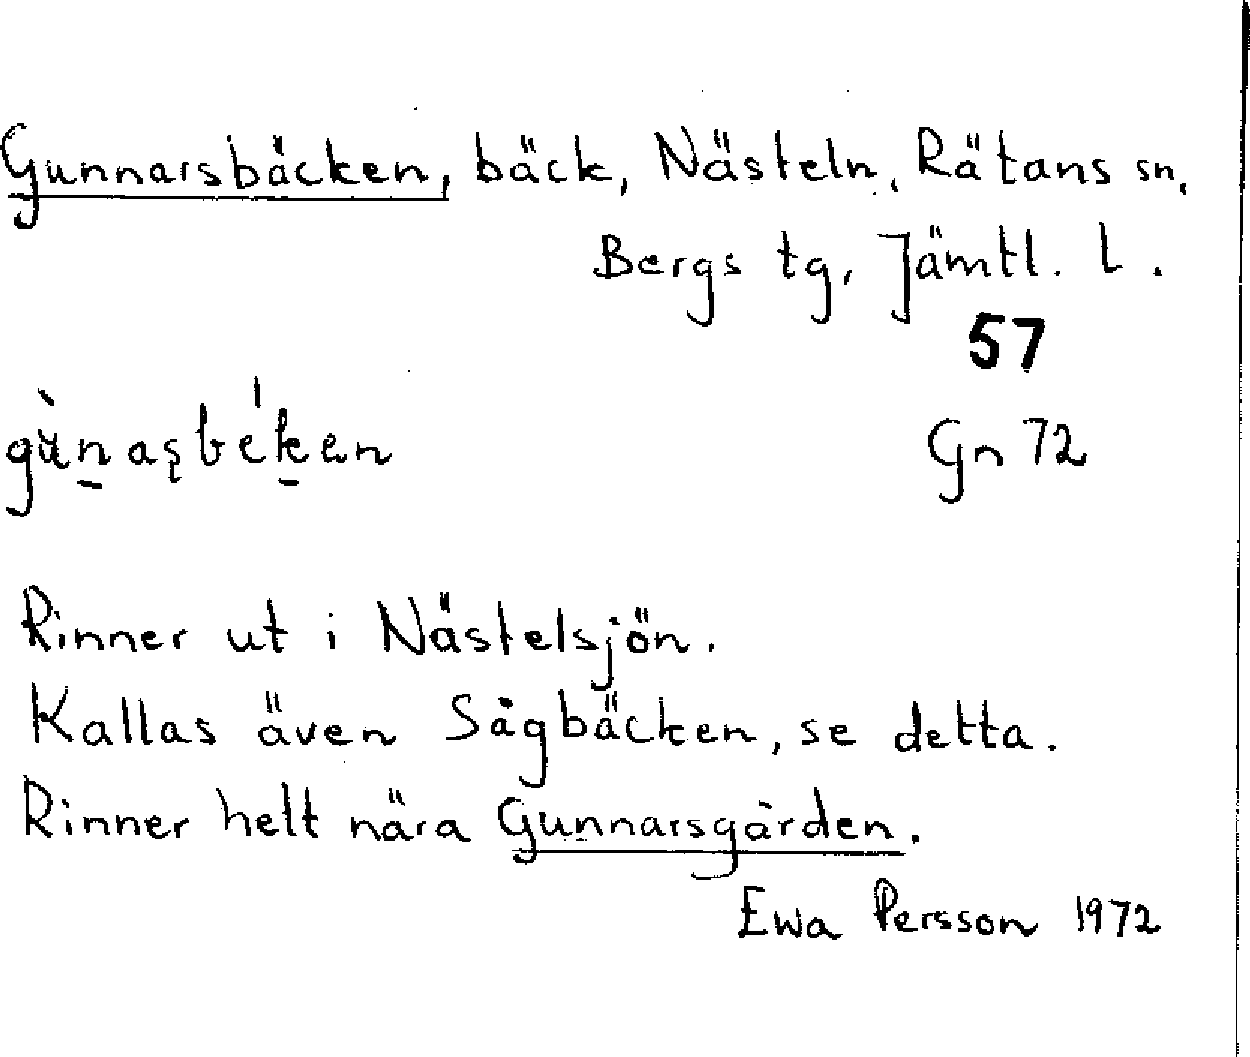 Gunnarsbäcken, bäck, Nästeln, Rätans sn,
Bergs tg, Jämtl. l.
57
gùn̠aʂbék̠en
Gn 72
Rinner ut i Nästelsjön.
Kallas även Sågbäcken, se detta.
Rinner helt nära Gunnarsgården.
Ewa Persson 1972